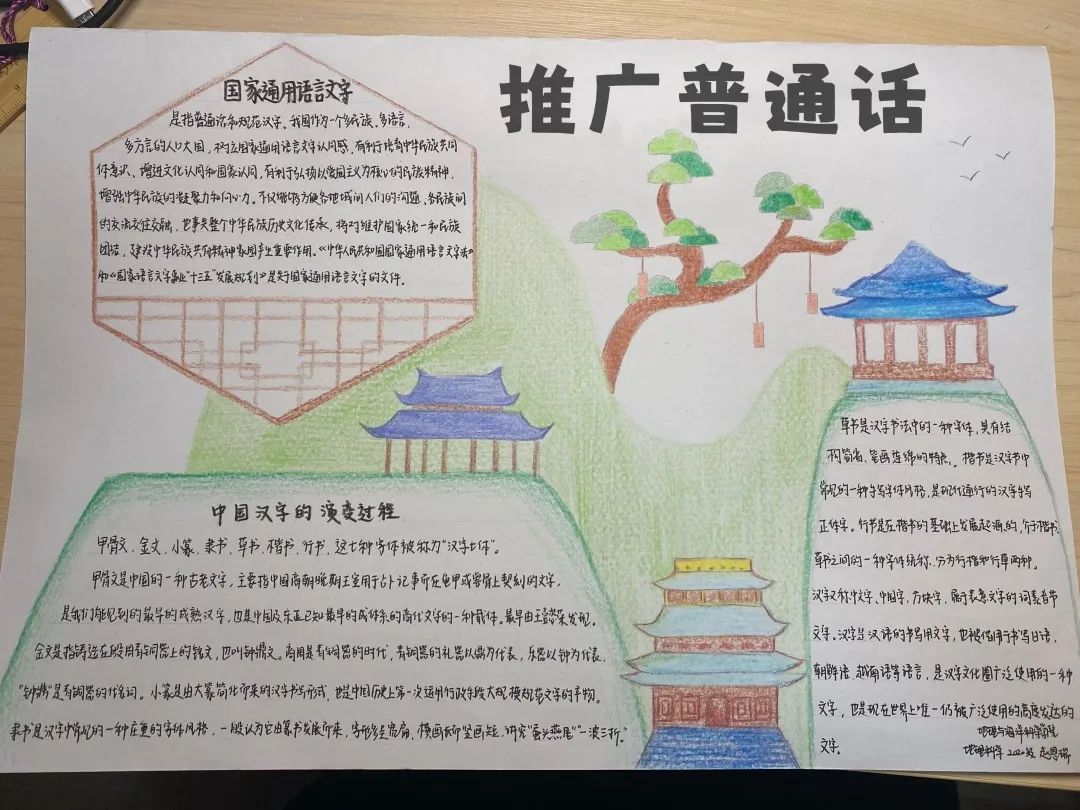 推广普通话
国家通用语言文字
是指普通话和规范汉字、我国作为一个多民族、多语言、
多方言的人口大国，树立国家通用语言文字认同感，有利于培育中华民族共同
体意识、增进文化认同和国家认同，有利于弘扬以爱国主义为核心的民族精神，
增强中华民族的凝聚力和向心力。不仅能够方便各地域间人们的沟通、各民族间
的交流交往交融，也事关整个中华民族历史文化传承，将对维护国家统一和民族
团结，建设中华民族共有精神家园产生重要作用。《中华人民共和国国家通用语言文字法》
和《国家语言文字事业"十三五"发展规划》是关于国家通用语言文字的文件。
中国汉字的演变过程
甲骨文、金文、小篆、隶书、草书、楷书、行书，这七种字体被称为"汉字七体"。
甲骨文是中国的一种古老文字，主要指中国商朝晚期王室用于占卜记事所在龟甲或兽骨上契刻的文字，
是我们能见到的最早的成熟汉字，也是中国及东亚已知最早的成体系的商代文字的一种载体。最早由王懿荣发现。
金文是指铸造在殷周青铜器上的铭文，也叫钟鼎文。商周是青铜器的时代，青铜器的礼器以鼎为代表，乐器以钟为代表，
"钟鼎"是青铜器的代名词。小篆是由大篆简化而来的汉字书写形式，也是中国历史上第一次运用行政手段大规模规范文字的产物。
隶书是汉字中常见的一种庄重的字体风格，一般认为它由篆书发展而来，字形多呈宽扁，横画长而竖画短，讲究"蚕头燕尾""一波三折"。
草书是汉字书法中的一种字体，具有结
构简省、笔画连绵的特点。楷书是汉字书中
常见的一种手写字体风格，是现代通行的汉字手写
正体字。行书是在楷书的基础上发展起源的，介于楷书、
草书之间的一种字体统称，分为行楷和行草两种。
汉字又称中文、中国字、方块字，属于表意文字的词素音节
文字。汉字是汉语的书写用文字，也被借用于书写日语、
朝鲜语、越南语等语言，是汉字文化圈广泛使用的一种
文字，也是现在世界上唯一仍被广泛使用的高度发达的
文字。
地理与海洋科学学院
地理科学 2020级